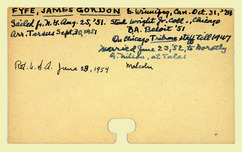 FYFE, JAMES GORDON b. Winnipeg, Can. Oct. 31, '28
Sailed fr. N.Y. Aug. 25, '51. Stud. Wright Jr. Coll., Chicago
Arr. Tarsus Sept 20, 1951 BA. Beloit '51
On Chicago Tribune staff till 1947
Married June 23, '52, to Dorothy
G. at Talas
Ret. U.S.A. June 28, 1954 Malcolm